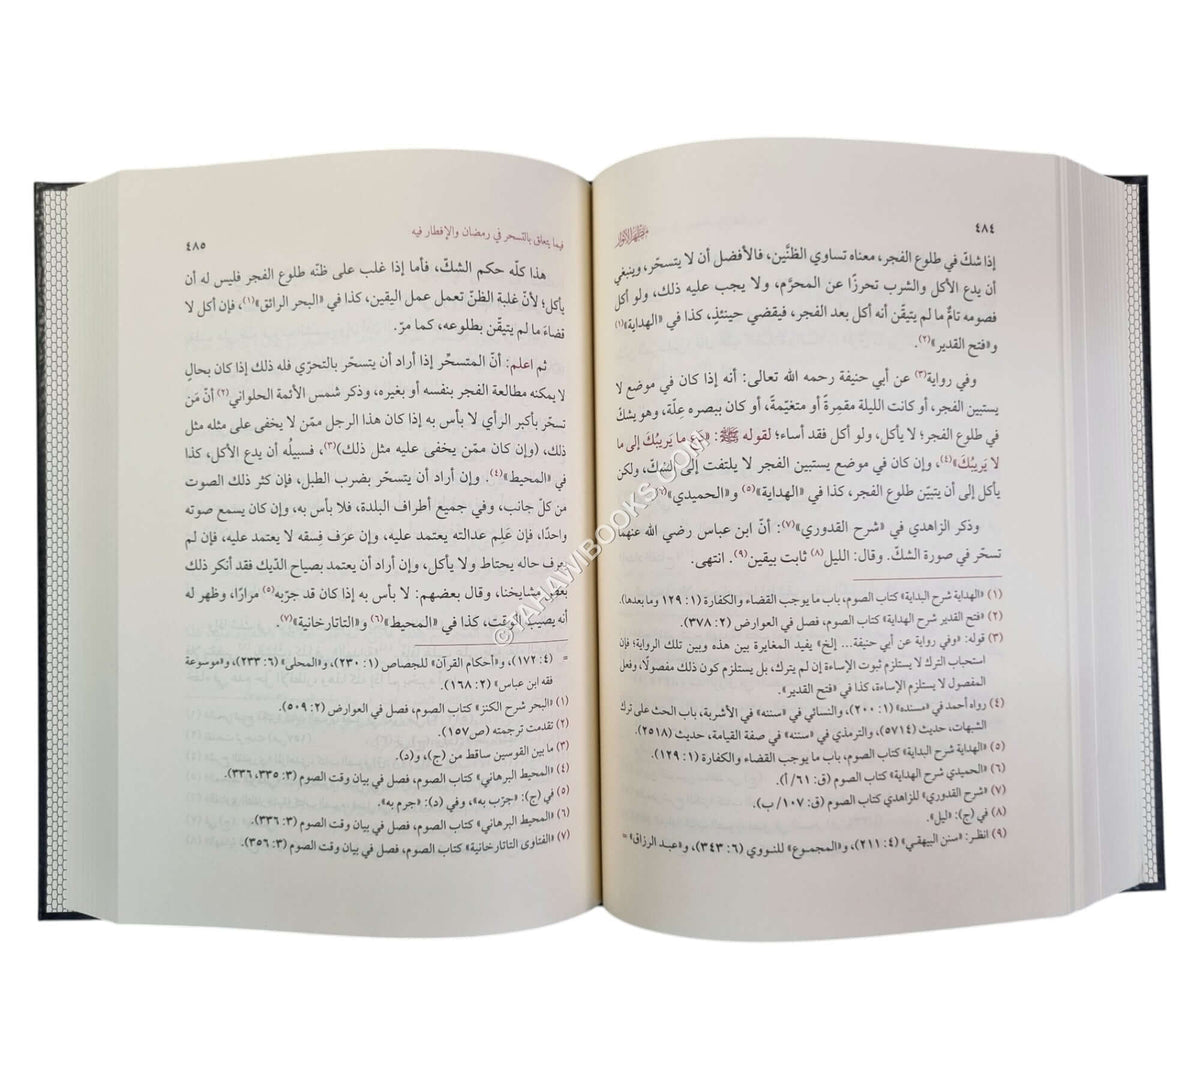 ٤٨٤
مظهر الأنوار
إذا شكّ في طلوع الفجر، معناه تساوي الظنَّين، فالأفضل أن لا يتسحّر، وينبغي
أن يدع الأكل والشرب تحرزًا عن المحرَّم، ولا يجب عليه ذلك، ولو أكل
فصومه تامٌّ ما لم يتيقّن أنه أكل بعد الفجر، فيقضي حينئذٍ، كذا في «الهداية»(١)
و«فتح القدير»(٢).
وفي رواية(٣) عن أبي حنيفة رحمه الله تعالى: أنه إذا كان في موضع لا
يستبين الفجر، أو كانت الليلة مقمرةً أو متغيّمةً، أو كان ببصره عِلّة، وهو يشكّ
في طلوع الفجر؛ لا يأكل، ولو أكل فقد أساء؛ لقوله ﷺ: «دَعْ ما يَرِيبُكَ إلى ما
لا يَرِيبُكَ»(٤)، وإن كان في موضع يستبين الفجر لا يلتفت إلى الشكّ، ولكن
يأكل إلى أن يتبيّن طلوع الفجر، كذا في «الهداية»(٥) و«الحميدي»(٦).
وذكر الزاهدي في «شرح القدوري»(٧): أنّ ابن عباس رضي الله عنهما
تسحّر في صورة الشكّ. وقال: الليل(٨) ثابت بيقين(٩). انتهى.
(١) «الهداية شرح البداية» كتاب الصوم، باب ما يوجب القضاء والكفارة (١: ١٢٩ وما بعدها).
(٢) «فتح القدير شرح الهداية» كتاب الصوم، فصل في العوارض (٢: ٣٧٨).
(٣) قوله: «وفي رواية عن أبي حنيفة... إلخ» يفيد المغايرة بين هذه وبين تلك الرواية؛ فإن
استحباب الترك لا يستلزم ثبوت الإساءة إن لم يترك، بل يستلزم كون ذلك مفصولًا، وفعل
المفصول لا يستلزم الإساءة، كذا في «فتح القدير».
(٤) رواه أحمد في «مسنده» (١: ٢٠٠)، والنسائي في «سننه» في الأشربة، باب الحث على ترك
الشبهات، حديث (٥٧١٤)، والترمذي في «سننه» في صفة القيامة، حديث (٢٥١٨).
(٥) «الهداية شرح البداية» كتاب الصوم، باب ما يوجب القضاء والكفارة (١: ١٢٩).
(٦) «الحميدي شرح الهداية» كتاب الصوم (ق: ٦١/ أ).
(٧) «شرح القدوري» للزاهدي كتاب الصوم (ق: ١٠٧/ ب).
(٨) في (ج): «ليل».
(٩) انظر: «سنن البيهقي» (٤: ٢١١)، و«المجموع» للنووي (٦: ٣٤٣)، و«عبد الرزاق» =
فيما يتعلق بالتسحر في رمضان والإفطار فيه
٤٨٥
هذا كلّه حكم الشكّ، فأما إذا غلب على ظنّه طلوع الفجر فليس له أن
يأكل؛ لأنّ غلبة الظنّ تعمل عمل اليقين، كذا في «البحر الرائق»(١)، فإن أكل لا
قضاءَ ما لم يتيقّن بطلوعه، كما مرّ.
ثم اعلم: أنّ المتسحِّر إذا أراد أن يتسحّر بالتحرّي فله ذلك إذا كان بحالٍ
لا يمكنه مطالعة الفجر بنفسه أو بغيره، وذكر شمس الأئمة الحلواني(٢) أنّ مَن
تسحّر بأكبر الرأي لا بأس به إذا كان هذا الرجل ممّن لا يخفى على مثله مثل
ذلك، (وإن كان ممّن يخفى عليه مثل ذلك)(٣)، فسبيلُه أن يدع الأكل، كذا
في «المحيط»(٤). وإن أراد أن يتسحّر بضرب الطبل، فإن كثر ذلك الصوت
من كلّ جانب، وفي جميع أطراف البلدة، فلا بأس به، وإن كان يسمع صوته
واحدًا، فإن عَلِم عدالته يعتمد عليه، وإن عرَف فِسقه لا يعتمد عليه، فإن لم
يعرف حاله يحتاط ولا يأكل، وإن أراد أن يعتمد بصياح الدّيك فقد أنكر ذلك
بعضُ مشايخنا، وقال بعضهم: لا بأس به إذا كان قد جرّبه(٥) مرارًا، وظهر له
أنه يصيب الوقت، كذا في «المحيط»(٦) و«التاتارخانية»(٧).
= (٤: ١٧٢)، و«أحكام القرآن» للجصاص (١: ٢٣٠)، و«المحلى» (٦: ٢٣٣)، و«موسوعة
فقه ابن عباس» (٢: ١٦٨).
(١) «البحر شرح الكنز» كتاب الصوم، فصل في العوارض (٢: ٥٠٩).
(٢) تقدمت ترجمته (ص١٥٧).
(٣) ما بين القوسين ساقط من (ج)، و(د).
(٤) «المحيط البرهاني» كتاب الصوم، فصل في بيان وقت الصوم (٣: ٣٣٥، ٣٣٦).
(٥) في (ج): «جرّب به»، وفي (د): «جرم به».
(٦) «المحيط البرهاني» كتاب الصوم، فصل في بيان وقت الصوم (٣: ٣٣٦).
(٧) «الفتاوى التاتارخانية» كتاب الصوم، فصل في بيان وقت الصوم (٣: ٣٥٦).
©TAHAWIBOOKS.COM